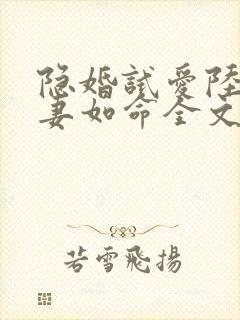 隐婚試愛陸
妻如命全文
若雪飛揚